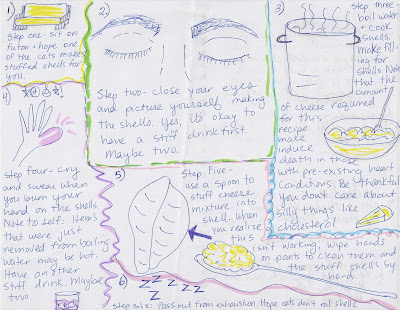 1)
Step one - sit on
futon + hope one
of the cats makes
stuffed shells for
you.
2)
Step two - close your eyes
and picture yourself making
the shells. Yes, it's okay to
have a stiff drink first.
Maybe two.
3)
Step three -
boil water
+ cook
shells.
make fill-
ing for
shells. Note
that the
amount
of cheese required
for this
recipe
may
induce
death in those
with pre-existing heart
conditions. Be thankful
you don't care about
silly things like
cholesterol
4)
Step four - cry
and swear when
you burn your
hand on the shells.
Note to self: Items
that were just
removed from boiling
water may be hot.
Have another
stiff drink. Maybe
two
5)
Step five -
use a spoon to
stuff cheese
mixture into
shell. When
you realize
this
isn't working, wipe hands
on pants to clean them and
stuff the shells by
hand.
6)
z z z z z z z
Step six: Pass out from exhaustion. Hope cats don't eat shells